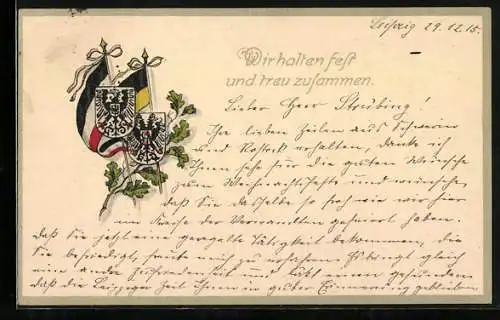 Leipzig 29.12.15.
Wir halten fest
und treu zusammen.
Lieber Herr Strübing!
Ihre lieben Zeilen aus Schwerin
und Rostock erhalten, danke ich
Ihnen sehr für die guten Wünsche
zum Weihnachtsfeste und wünsche,
daß Sie dasselbe so froh wie wir hier
im Kreise der Verwandten gefeiert haben.
daß Sie jetzt eine geregelte Tätigkeit bekommen, die
Sie befriedigt, freute mich zu erfahren. bringt gleich
eine andre Zufriedenheit und
daß die Leipziger Zeit Ihnen in guter Erinnerung geblieben